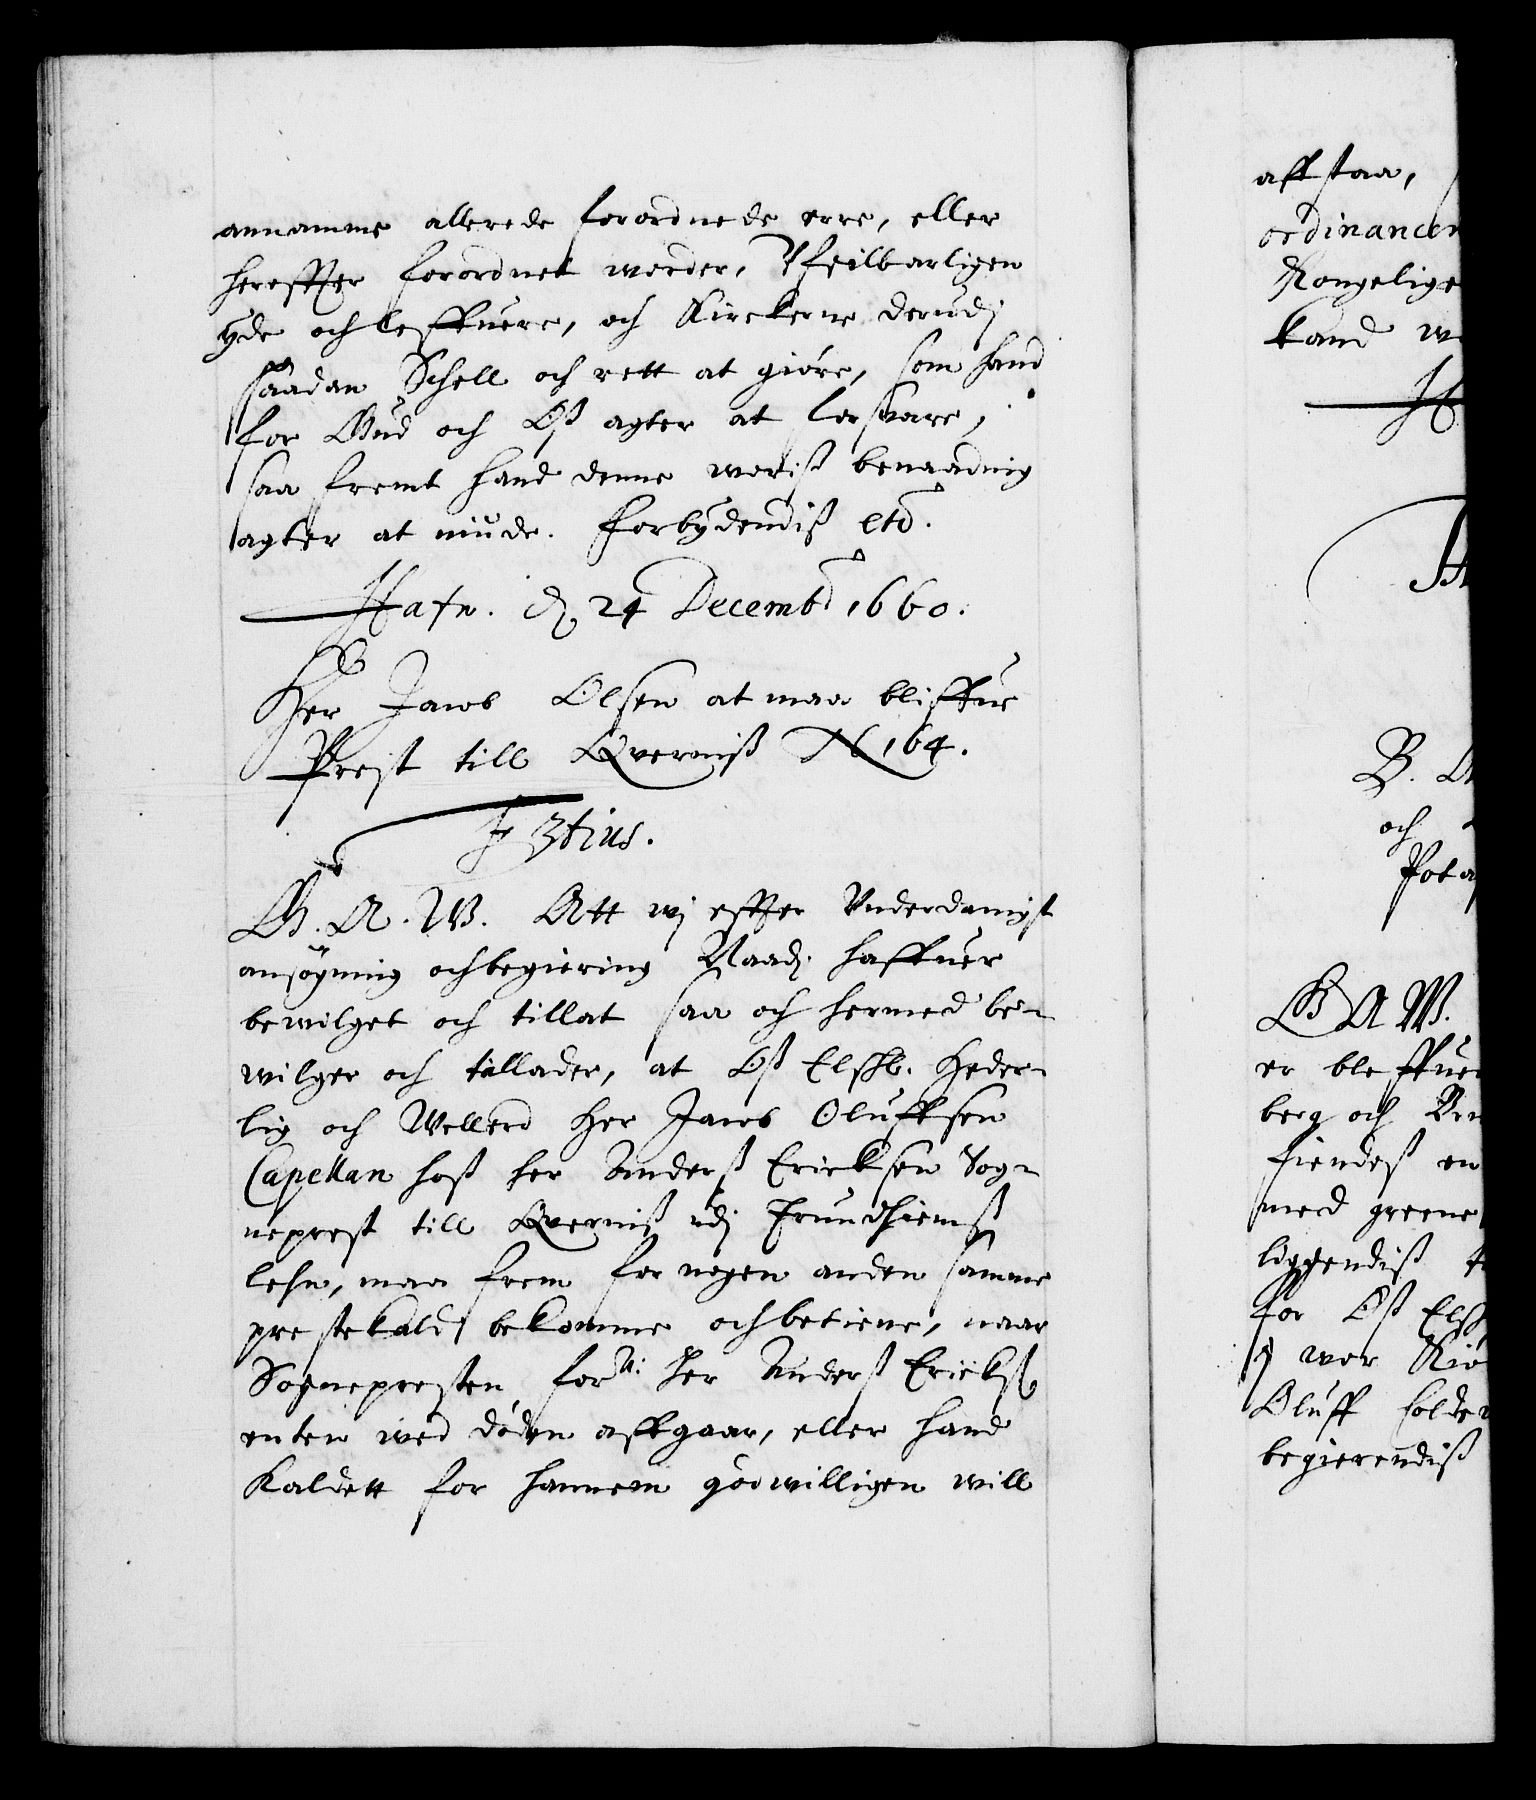 annamme allerede forordnede erre, eller
herefter forordnet worder, Vfeilbarligen
yde och leffuere, och Kirckerne derudj
saadan Schell och rett at giöre, som hand
for Gud och Oß agter at forsvare,
saa fremt hand denne woriß benaading
agter at niude. Forbydendiß etc.
Hafn. d 24 Decemb 1660.
Her Jacob Olsen at maa bliffue
Prest till Qverniß N 164.
F 3tius.
G. A. W. Att wj effter Vnderdanigst
ansögning och begiering Naadj. haffuer
bewilget och tillat saa och hermed be-
wilger och tillader, at Oß Elskl. Heder-
lig och Wellerd Her Jacob Oluffsen
Capellan hoß her Anderß Ericksen Sog-
neprest till Qverniß udj Trundhiemß
lehn, maa frem for nogen anden samme
prestekald bekomme och betiene, naar
Sognepresten forne: Her Anderß Ericks
enten wed döden affgaar, eller hand
Kaldett for hannem godwilligen will
affstaa,
ordinancen
Kongelige
kand
H
B.
och
Pota
G A W.
er bleffuen
berg och
fiendeß en
med greene
liggendiß
for Oß Elsk
j wor Kiö
Oluff
begierendiß